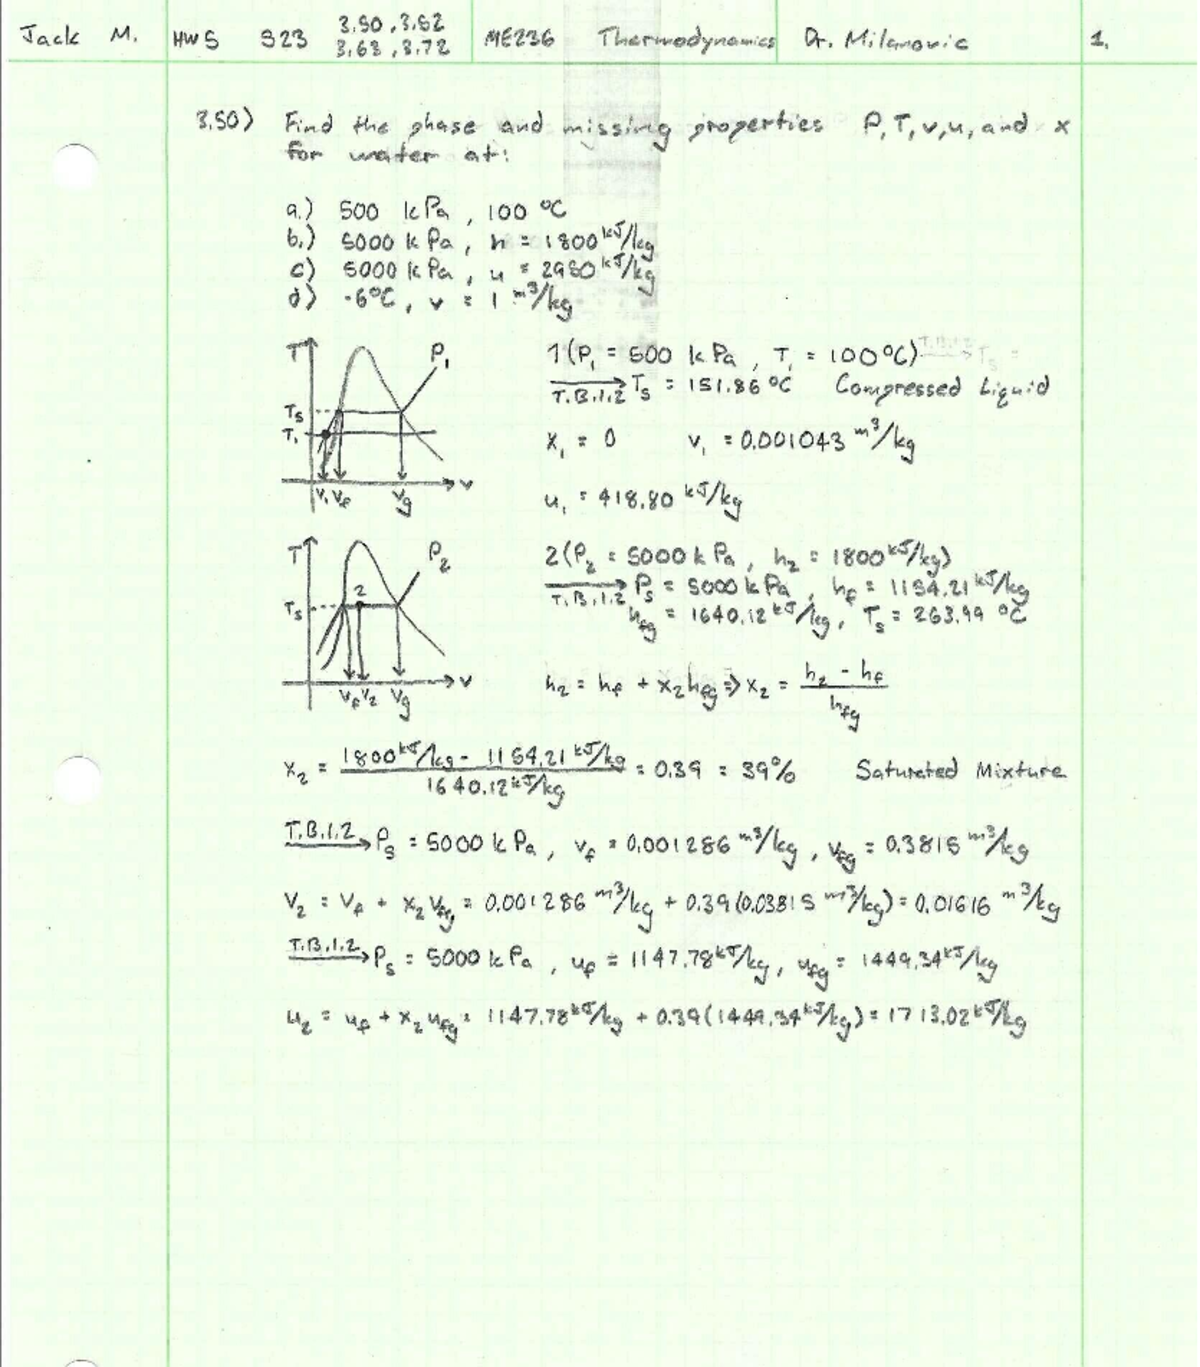 Jack M. HW5 S23 3.50, 3.52 ME236 Thermodynamics Dr. Milanovic 1.
3.63, 3.72
3.50) Find the phase and missing properties P, T, v, u, and x
for water at:
a.) 500 kPa, 100 °C
b.) 5000 kPa, h = 1800 kJ/kg
c) 5000 kPa, u = 2950 kJ/kg
d) -6°C, v = 1 m³/kg
T P₁ Tₛ T₁ v₁ v_f v_g v
1(P₁ = 500 kPa, T₁ = 100°C)
T.B.1.2→ Tₛ = 151.86 °C Compressed Liquid
x₁ = 0 v₁ = 0.001043 m³/kg
u₁ = 418.80 kJ/kg
T P₂ 2 Tₛ v_f v₂ v_g v
2(P₂ = 5000 kPa, h₂ = 1800 kJ/kg)
T.B.1.2→ Pₛ = 5000 kPa, h_f = 1154.21 kJ/kg
h_fg = 1640.12 kJ/kg, Tₛ = 263.99 °C
h₂ = h_f + x₂h_fg ⇒ x₂ = (h₂ - h_f)/h_fg
x₂ = (1800 kJ/kg - 1154.21 kJ/kg)/(1640.12 kJ/kg) = 0.39 = 39% Saturated Mixture
T.B.1.2→ Pₛ = 5000 kPa, v_f = 0.001286 m³/kg, v_fg = 0.3815 m³/kg
V₂ = V_f + x₂V_fg = 0.001286 m³/kg + 0.39(0.03815 m³/kg) = 0.01616 m³/kg
T.B.1.2→ Pₛ = 5000 kPa, u_f = 1147.78 kJ/kg, u_fg = 1449.34 kJ/kg
u₂ = u_f + x₂u_fg = 1147.78 kJ/kg + 0.39(1449.34 kJ/kg) = 1713.02 kJ/kg